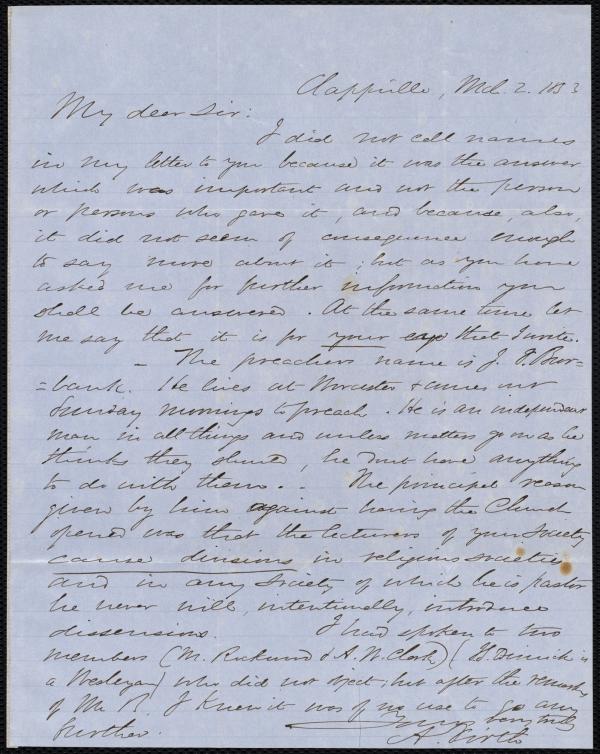 Clappville, Mch. 2. 1853
My dear Sir:
I did not call names
in my letter to you because it was the answer
which was important and not the person
or persons who gave it, and because, also,
it did not seem of consequence enough
to say more about it; but as you have
asked me for further information you
shall be answered. At the same time let
me say that it is for your eye that I write.
- The preachers name is J. T. Bur=
=bank. He lives at Worcester & comes out
Sunday mornings to preach. He is an independent
man in all things and unless matters go on as he
thinks they should, he dont have anything
to do with them. . The principal reason
given by him against having the Church
opened was that the lecturers of your Society
cause divisions in religious societies
and in any society of which he is pastor
he never will, intentionally, introduce
dissensions. I had spoken to two
members (M. & A. W. Clark) ( is
a Wesleyan) who did not object; but after the remarks
of Mr B. I knew it was of no use to go any
further. Yours very truly
A. Firth